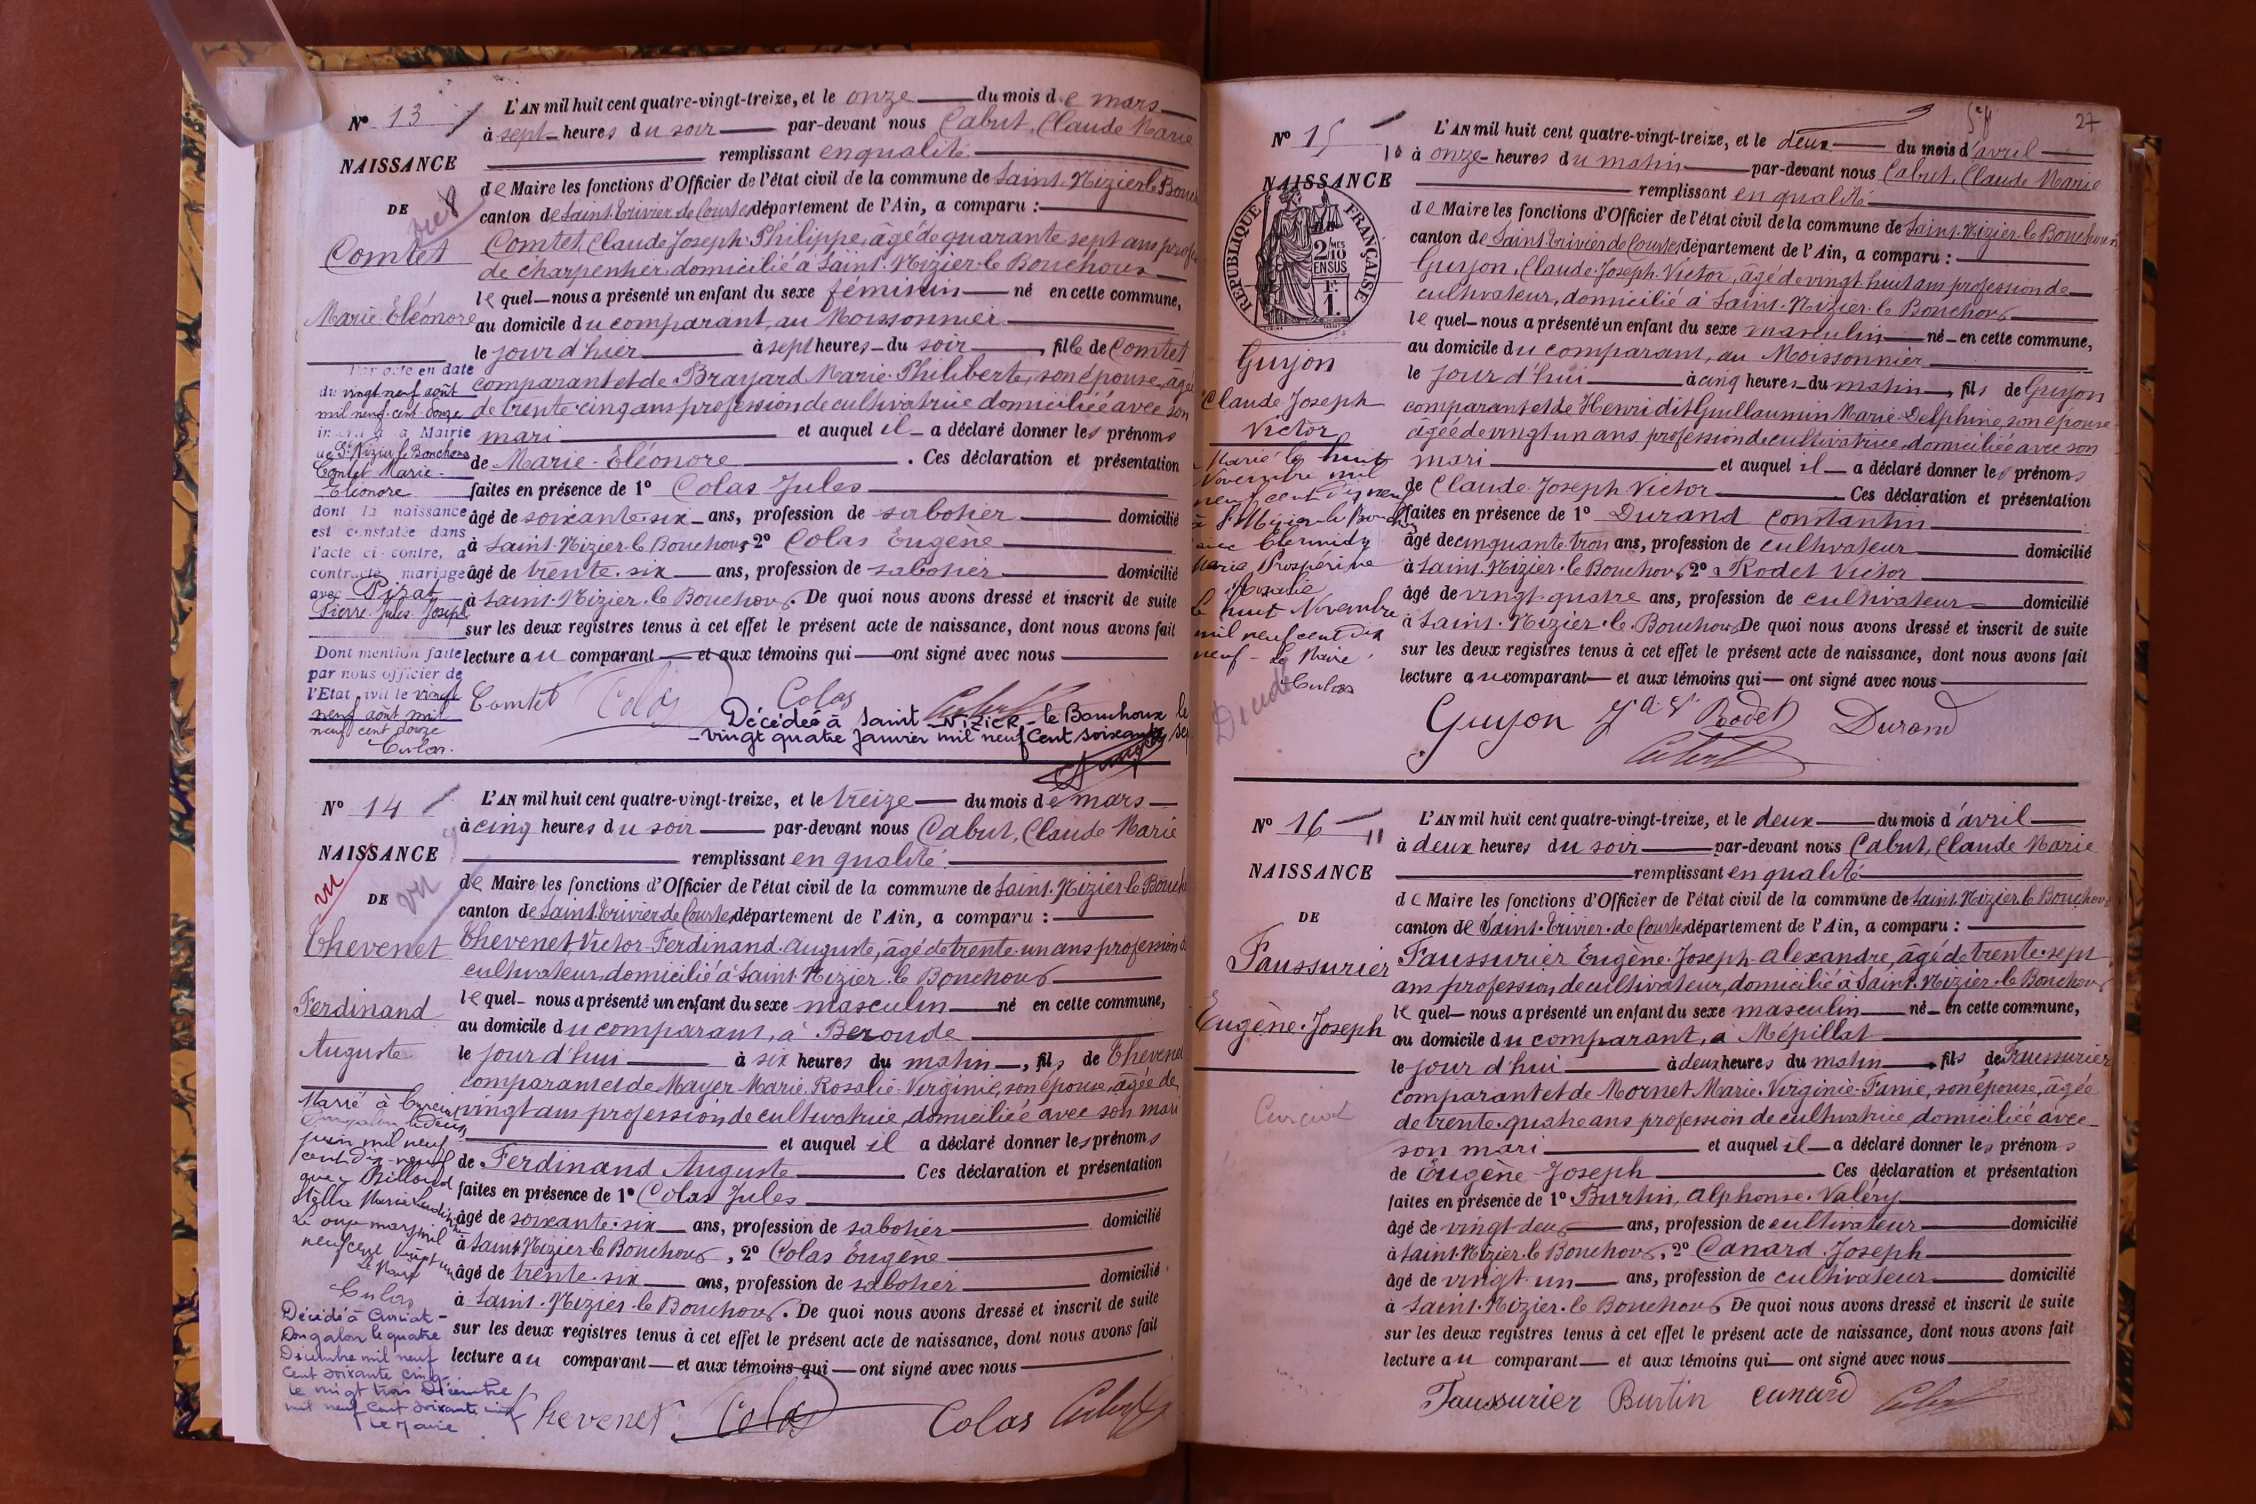 N° 13
NAISSANCE
DE
Comtet
Marie Eléonore
Par acte en date
du vingt neuf août
mil neuf cent douze
inscrit à la Mairie
de St Nizier le Bouchoux
Comtet Marie-
Eléonore
dont la naissance
est constatée dans
l'acte ci-contre, a
contracté mariage
avec Pirat
Pierre Jules Joseph
Dont mention faite
par nous officier de
l'Etat civil le vingt
neuf août mil
neuf cent douze
L'AN mil huit cent quatre-vingt-treize, et le onze du mois de mars
à sept heures du soir par-devant nous Cabut, Claude Marie
remplissant en qualité
de Maire les fonctions d'Officier de l'état civil de la commune de Saint-Nizier-le-Bouch
canton de Saint-Trivier-de-Courtes département de l'Ain, a comparu :
Comtet, Claude Joseph Philippe, âgé de quarante sept ans profes
de charpentier domicilié à Saint-Nizier-le-Bouchoux
lequel nous a présenté un enfant du sexe féminin né en cette commune,
au domicile du comparant, au Moissonnier
le jour d'hier à sept heures du soir, fille de Comtet
comparant et de Brayard Marie Philiberte, son épouse, âgée
de trente-cinq ans profession de cultivatrice domiciliée avec son
mari et auquel il a déclaré donner les prénoms
de Marie-Eléonore. Ces déclaration et présentation
faites en présence de 1° Colas Jules
âgé de soixante-six ans, profession de sabotier domicilié
à Saint-Nizier-le-Bouchoux 2° Colas Eugène
âgé de trente-six ans, profession de sabotier domicilié
à Saint-Nizier-le-Bouchoux. De quoi nous avons dressé et inscrit de suite
sur les deux registres tenus à cet effet le présent acte de naissance, dont nous avons fait
lecture au comparant et aux témoins qui ont signé avec nous
Comtet Colas Colas Cabut
Décédée à Saint-NIZIER-le Bouchoux le
vingt quatre janvier mil neuf cent soixante sep
N° 14
NAISSANCE
vu
DE
vu
Thevenet
Ferdinand
Auguste
Marié à Curciat
Dongalon le deux
juin mil neuf
cent dix-neuf
avec Billoud
Stella Marie
Le onze mars mil
neuf cent vingt un
Le Maire
Décédé à Curciat-
Dongalon le quatre
Décembre mil neuf
cent soixante cinq
Le vingt trois Décembre
mil neuf cent soixante cinq
Le Maire
L'AN mil huit cent quatre-vingt-treize, et le treize du mois de mars
à cinq heures du soir par-devant nous Cabut, Claude Marie
remplissant en qualité
de Maire les fonctions d'Officier de l'état civil de la commune de Saint-Nizier-le-Bouch
canton de Saint-Trivier-de-Courtes département de l'Ain, a comparu :
Thevenet Victor-Ferdinand-Auguste, âgé de trente-un ans profession de
cultivateur domicilié à Saint-Nizier-le-Bouchoux
lequel nous a présenté un enfant du sexe masculin né en cette commune,
au domicile du comparant, à Beronde
le jour d'hui à six heures du matin, fils de Thevenet
comparant et de Mayer Marie Rosalie Virginie, son épouse, âgée de
vingt ans profession de cultivatrice, domiciliée avec son mari
et auquel il a déclaré donner les prénoms
de Ferdinand Auguste Ces déclaration et présentation
faites en présence de 1° Colas Jules
âgé de soixante-six ans, profession de sabotier domicilié
à Saint-Nizier-le-Bouchoux, 2° Colas Eugène
âgé de trente-six ans, profession de sabotier domicilié
à Saint-Nizier-le-Bouchoux. De quoi nous avons dressé et inscrit de suite
sur les deux registres tenus à cet effet le présent acte de naissance, dont nous avons fait
lecture au comparant et aux témoins qui ont signé avec nous
Thevenet Colas Colas Cabut
27
N° 15
10
NAISSANCE
RÉPUBLIQUE FRANÇAISE
2/10
EN SUS
1 Fr.
Guyon
Claude Joseph
Victor
Marié le huit
Novembre mil
neuf cent dix neuf
à St Nizier le Bouchoux
avec Clermidy
Maria Prospérine
Rosalie
Le huit Novembre
mil neuf cent dix
neuf - Le Maire
Décédé
L'AN mil huit cent quatre-vingt-treize, et le deux du mois d'avril
à onze heures du matin par-devant nous Cabut, Claude Marie
remplissant en qualité
de Maire les fonctions d'Officier de l'état civil de la commune de Saint-Nizier-le-Bouchoux
canton de Saint-Trivier-de-Courtes département de l'Ain, a comparu :
Guyon, Claude-Joseph-Victor, âgé de vingt-huit ans profession de
cultivateur, domicilié à Saint-Nizier-le-Bouchoux
lequel nous a présenté un enfant du sexe masculin né en cette commune,
au domicile du comparant, au Moissonnier
le jour d'hui à cinq heures du matin, fils de Guyon
comparant et de Henri dit Guillaumin Marie-Delphine, son épouse
âgée de vingt un ans profession de cultivatrice, domiciliée avec son
mari et auquel il a déclaré donner les prénoms
de Claude-Joseph-Victor Ces déclaration et présentation
faites en présence de 1° Durand Constantin
âgé de cinquante-trois ans, profession de cultivateur domicilié
à Saint-Nizier-le-Bouchoux, 2° Rodet Victor
âgé de vingt-quatre ans, profession de cultivateur domicilié
à Saint-Nizier-le-Bouchoux De quoi nous avons dressé et inscrit de suite
sur les deux registres tenus à cet effet le présent acte de naissance, dont nous avons fait
lecture au comparant et aux témoins qui ont signé avec nous
Guyon Rodet Durand
Cabut
N° 16
11
NAISSANCE
DE
Faussurier
Eugène-Joseph
Curciat
L'AN mil huit cent quatre-vingt-treize, et le deux du mois d'avril
à deux heures du soir par-devant nous Cabut, Claude Marie
remplissant en qualité
de Maire les fonctions d'Officier de l'état civil de la commune de Saint-Nizier-le-Bouchoux
canton de Saint-Trivier-de-Courtes département de l'Ain, a comparu :
Faussurier Eugène-Joseph-Alexandre, âgé de trente-sept
ans profession de cultivateur, domicilié à Saint-Nizier-le-Bouchoux
lequel nous a présenté un enfant du sexe masculin né en cette commune,
au domicile du comparant, à Mépillat
le jour d'hui à deux heures du matin, fils de Faussurier
comparant et de Mornet Marie-Virginie-Fanie, son épouse, âgée
de trente-quatre ans profession de cultivatrice domiciliée avec
son mari et auquel il a déclaré donner les prénoms
de Eugène-Joseph Ces déclaration et présentation
faites en présence de 1° Burtin, Alphonse-Valéry
âgé de vingt-deux ans, profession de cultivateur domicilié
à Saint-Nizier-le-Bouchoux, 2° Canard Joseph
âgé de vingt-un ans, profession de cultivateur domicilié
à Saint-Nizier-le-Bouchoux De quoi nous avons dressé et inscrit de suite
sur les deux registres tenus à cet effet le présent acte de naissance, dont nous avons fait
lecture au comparant et aux témoins qui ont signé avec nous
Faussurier Burtin Canard Cabut